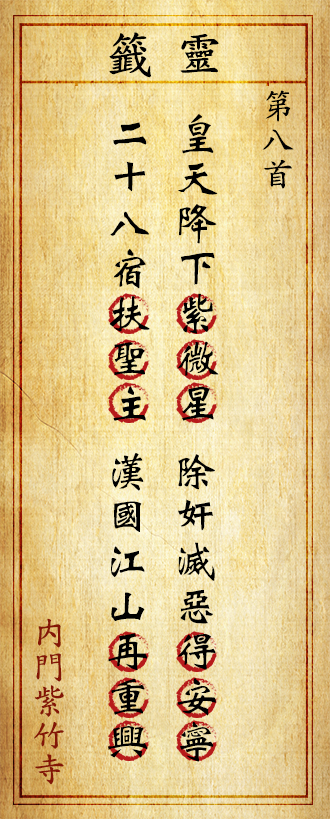 靈籤
第八首
皇天降下紫微星 除奸滅惡得安寧
二十八宿扶聖主 漢國江山再重興
内門紫竹寺